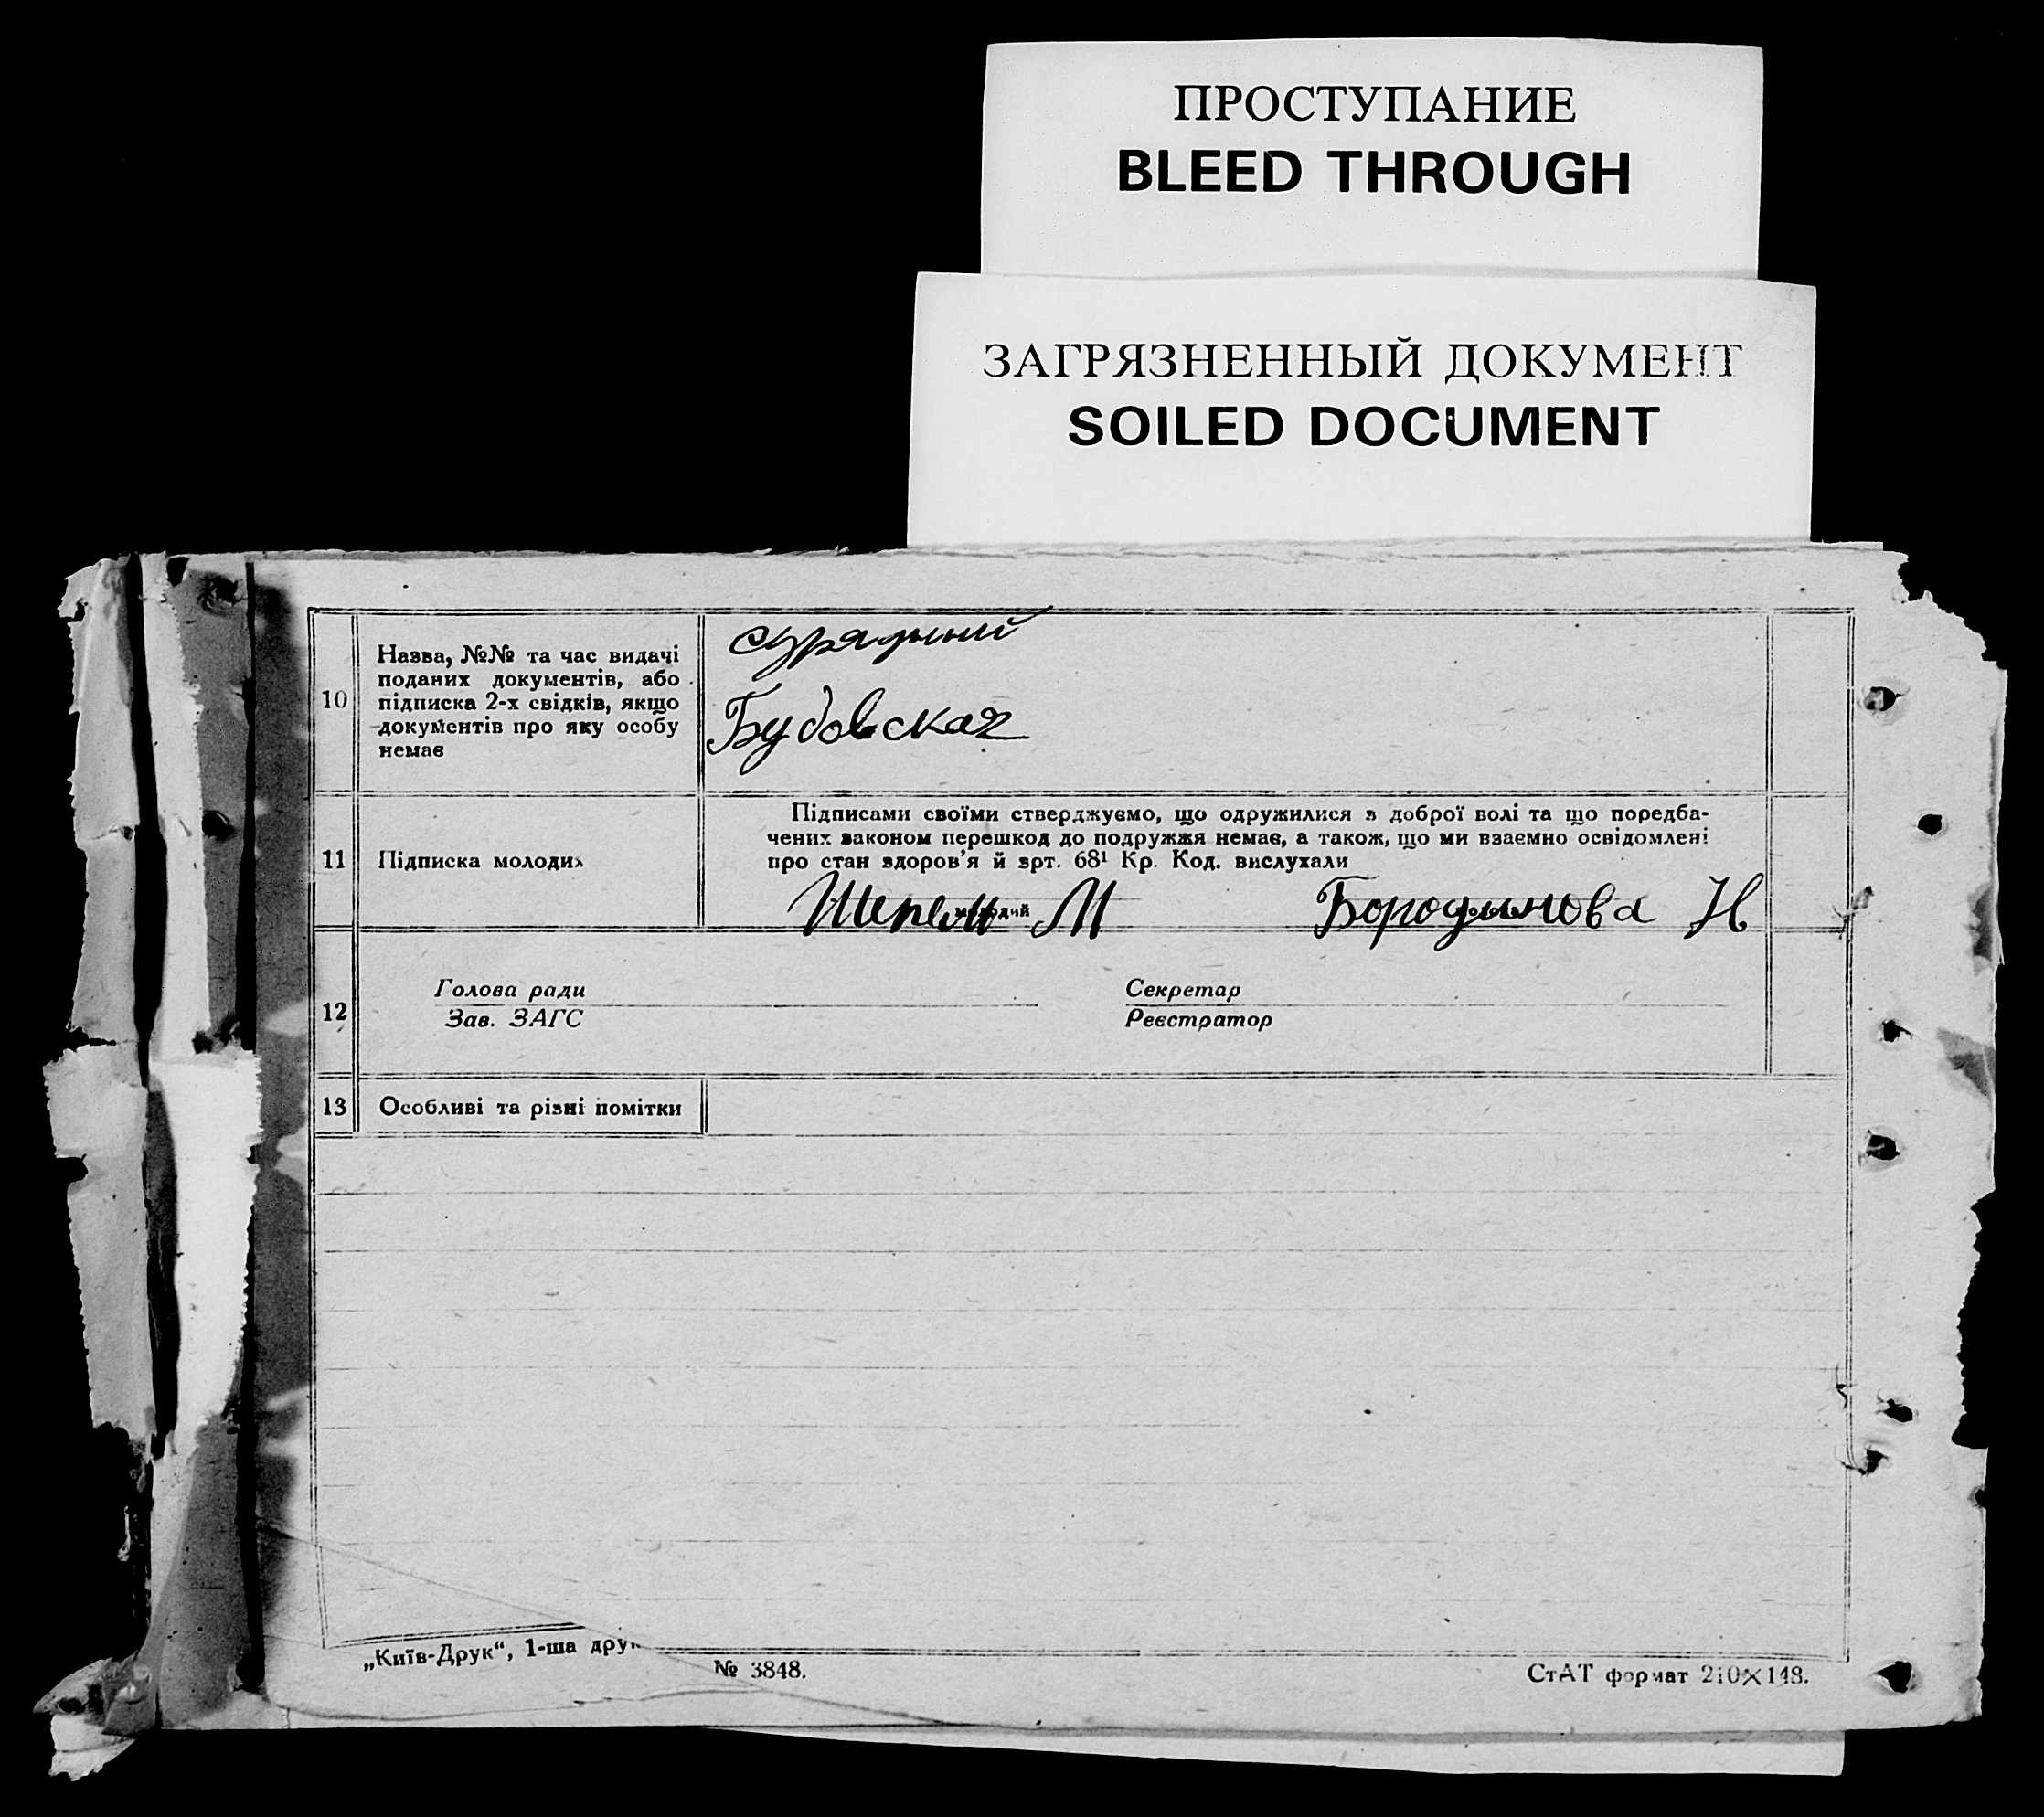 ПРОСТУПАНИЕ
BLEED THROUGH
ЗАГРЯЗНЕННЫЙ ДОКУМЕНТ
SOILED DOCUMENT
10
Назва, №№ та час видачі
поданих документів, або
підписка 2-х свідків, якщо
документів про яку особу
немає
Будовская
11
Підписка молодих
Підписами своїми стверджуємо, що одружилися з доброї волі та що передба-
чених законом перешкод до подружжя немає, а також, що ми взаємно освідомлені
про стан здоров'я й арт. 68¹ Кр. Код. вислухали
молодий
М Бородинова Н
12
Голова ради
Зав. ЗАГС
Секретар
Реєстратор
13
Особливі та різні помітки
„Київ-Друк“, 1-ша друк
№ 3848.
СтАТ формат 210×148.